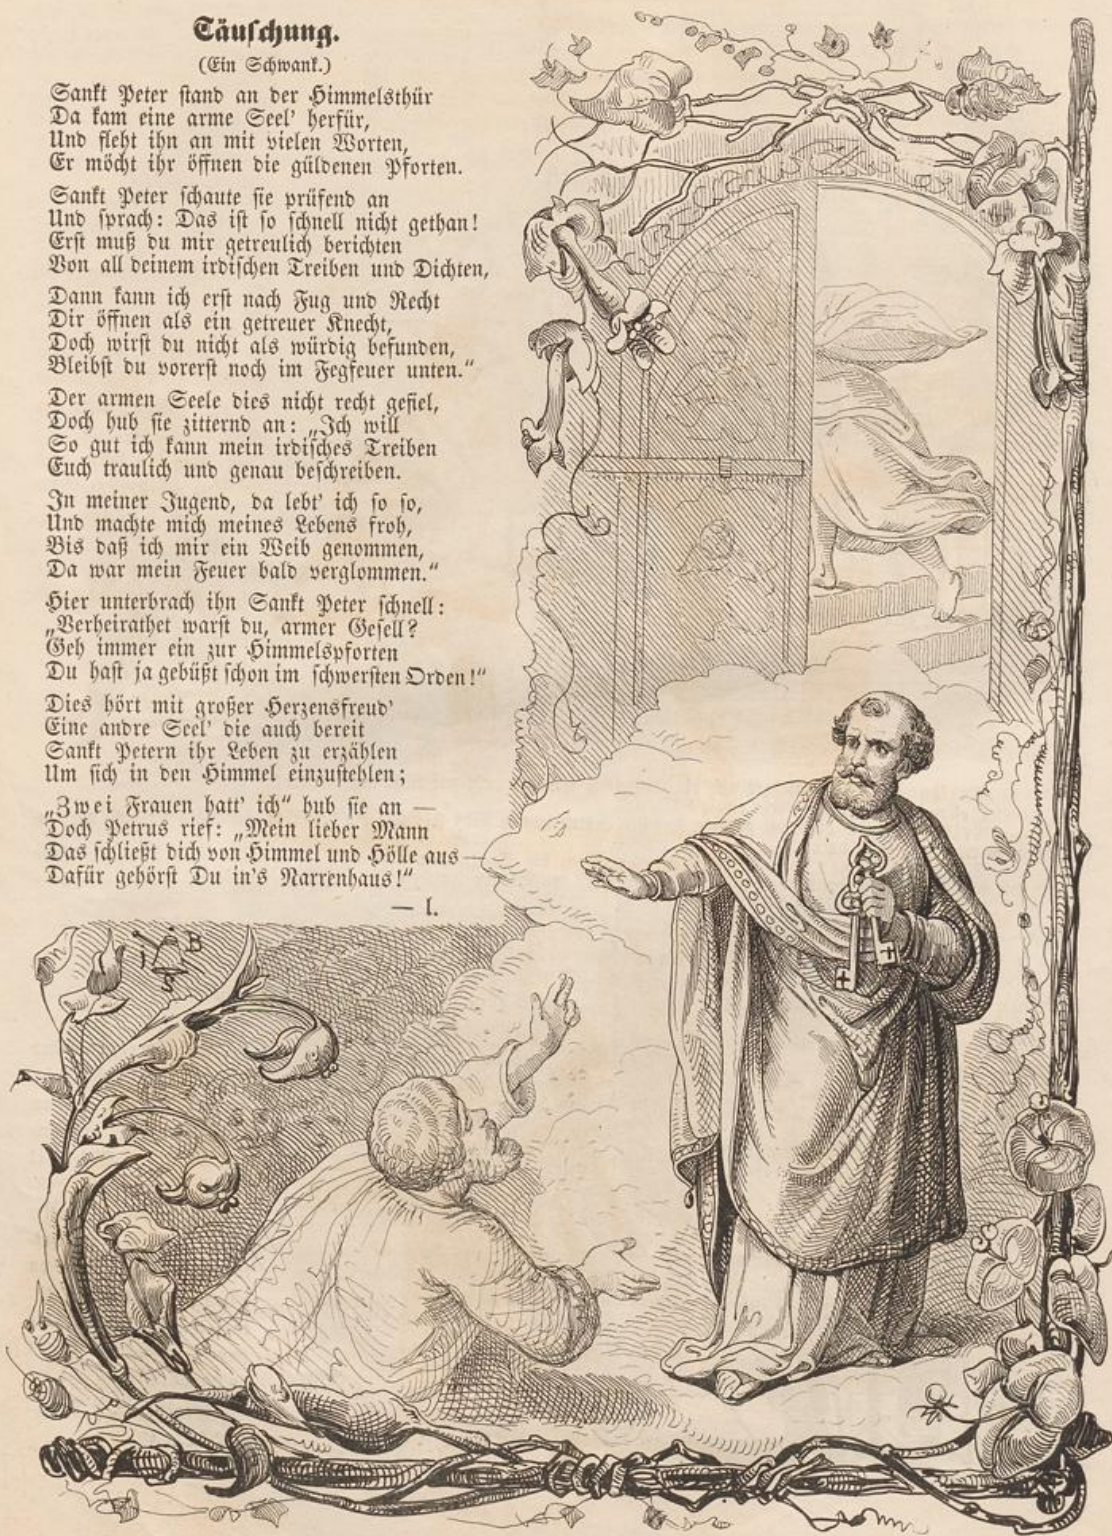 Täuschung.
(Ein Schwank.)
Sankt Peter stand an der Himmelsthür
Da kam eine arme Seel' herfür,
Und fleht ihn an mit vielen Worten,
Er möcht ihr öffnen die güldenen Pforten.
Sankt Peter schaute sie prüfend an
Und sprach: Das ist so schnell nicht gethan!
Erst muß du mir getreulich berichten
Von all deinem irdischen Treiben und Dichten,
Dann kann ich erst nach Fug und Recht
Dir öffnen als ein getreuer Knecht,
Doch wirst du nicht als würdig befunden,
Bleibst du vorerst noch im Fegfeuer unten.“
Der armen Seele dies nicht recht gefiel,
Doch hub sie zitternd an: „Ich will
So gut ich kann mein irdisches Treiben
Euch traulich und genau beschreiben.
In meiner Jugend, da lebt' ich so so,
Und machte mich meines Lebens froh,
Bis daß ich mir ein Weib genommen,
Da war mein Feuer bald verglommen.“
Hier unterbrach ihn Sankt Peter schnell:
„Verheirathet warst du, armer Gesell?
Geh immer ein zur Himmelspforten
Du hast ja gebüßt schon im schwersten Orden!“
Dies hört mit großer Herzensfreud'
Eine andre Seel' die auch bereit
Sankt Petern ihr Leben zu erzählen
Um sich in den Himmel einzustehlen;
„Zwei Frauen hatt' ich“ hub sie an —
Doch Petrus rief: „Mein lieber Mann
Das schließt dich von Himmel und Hölle aus —
Dafür gehörst Du in's Narrenhaus!“
— l.
B
S